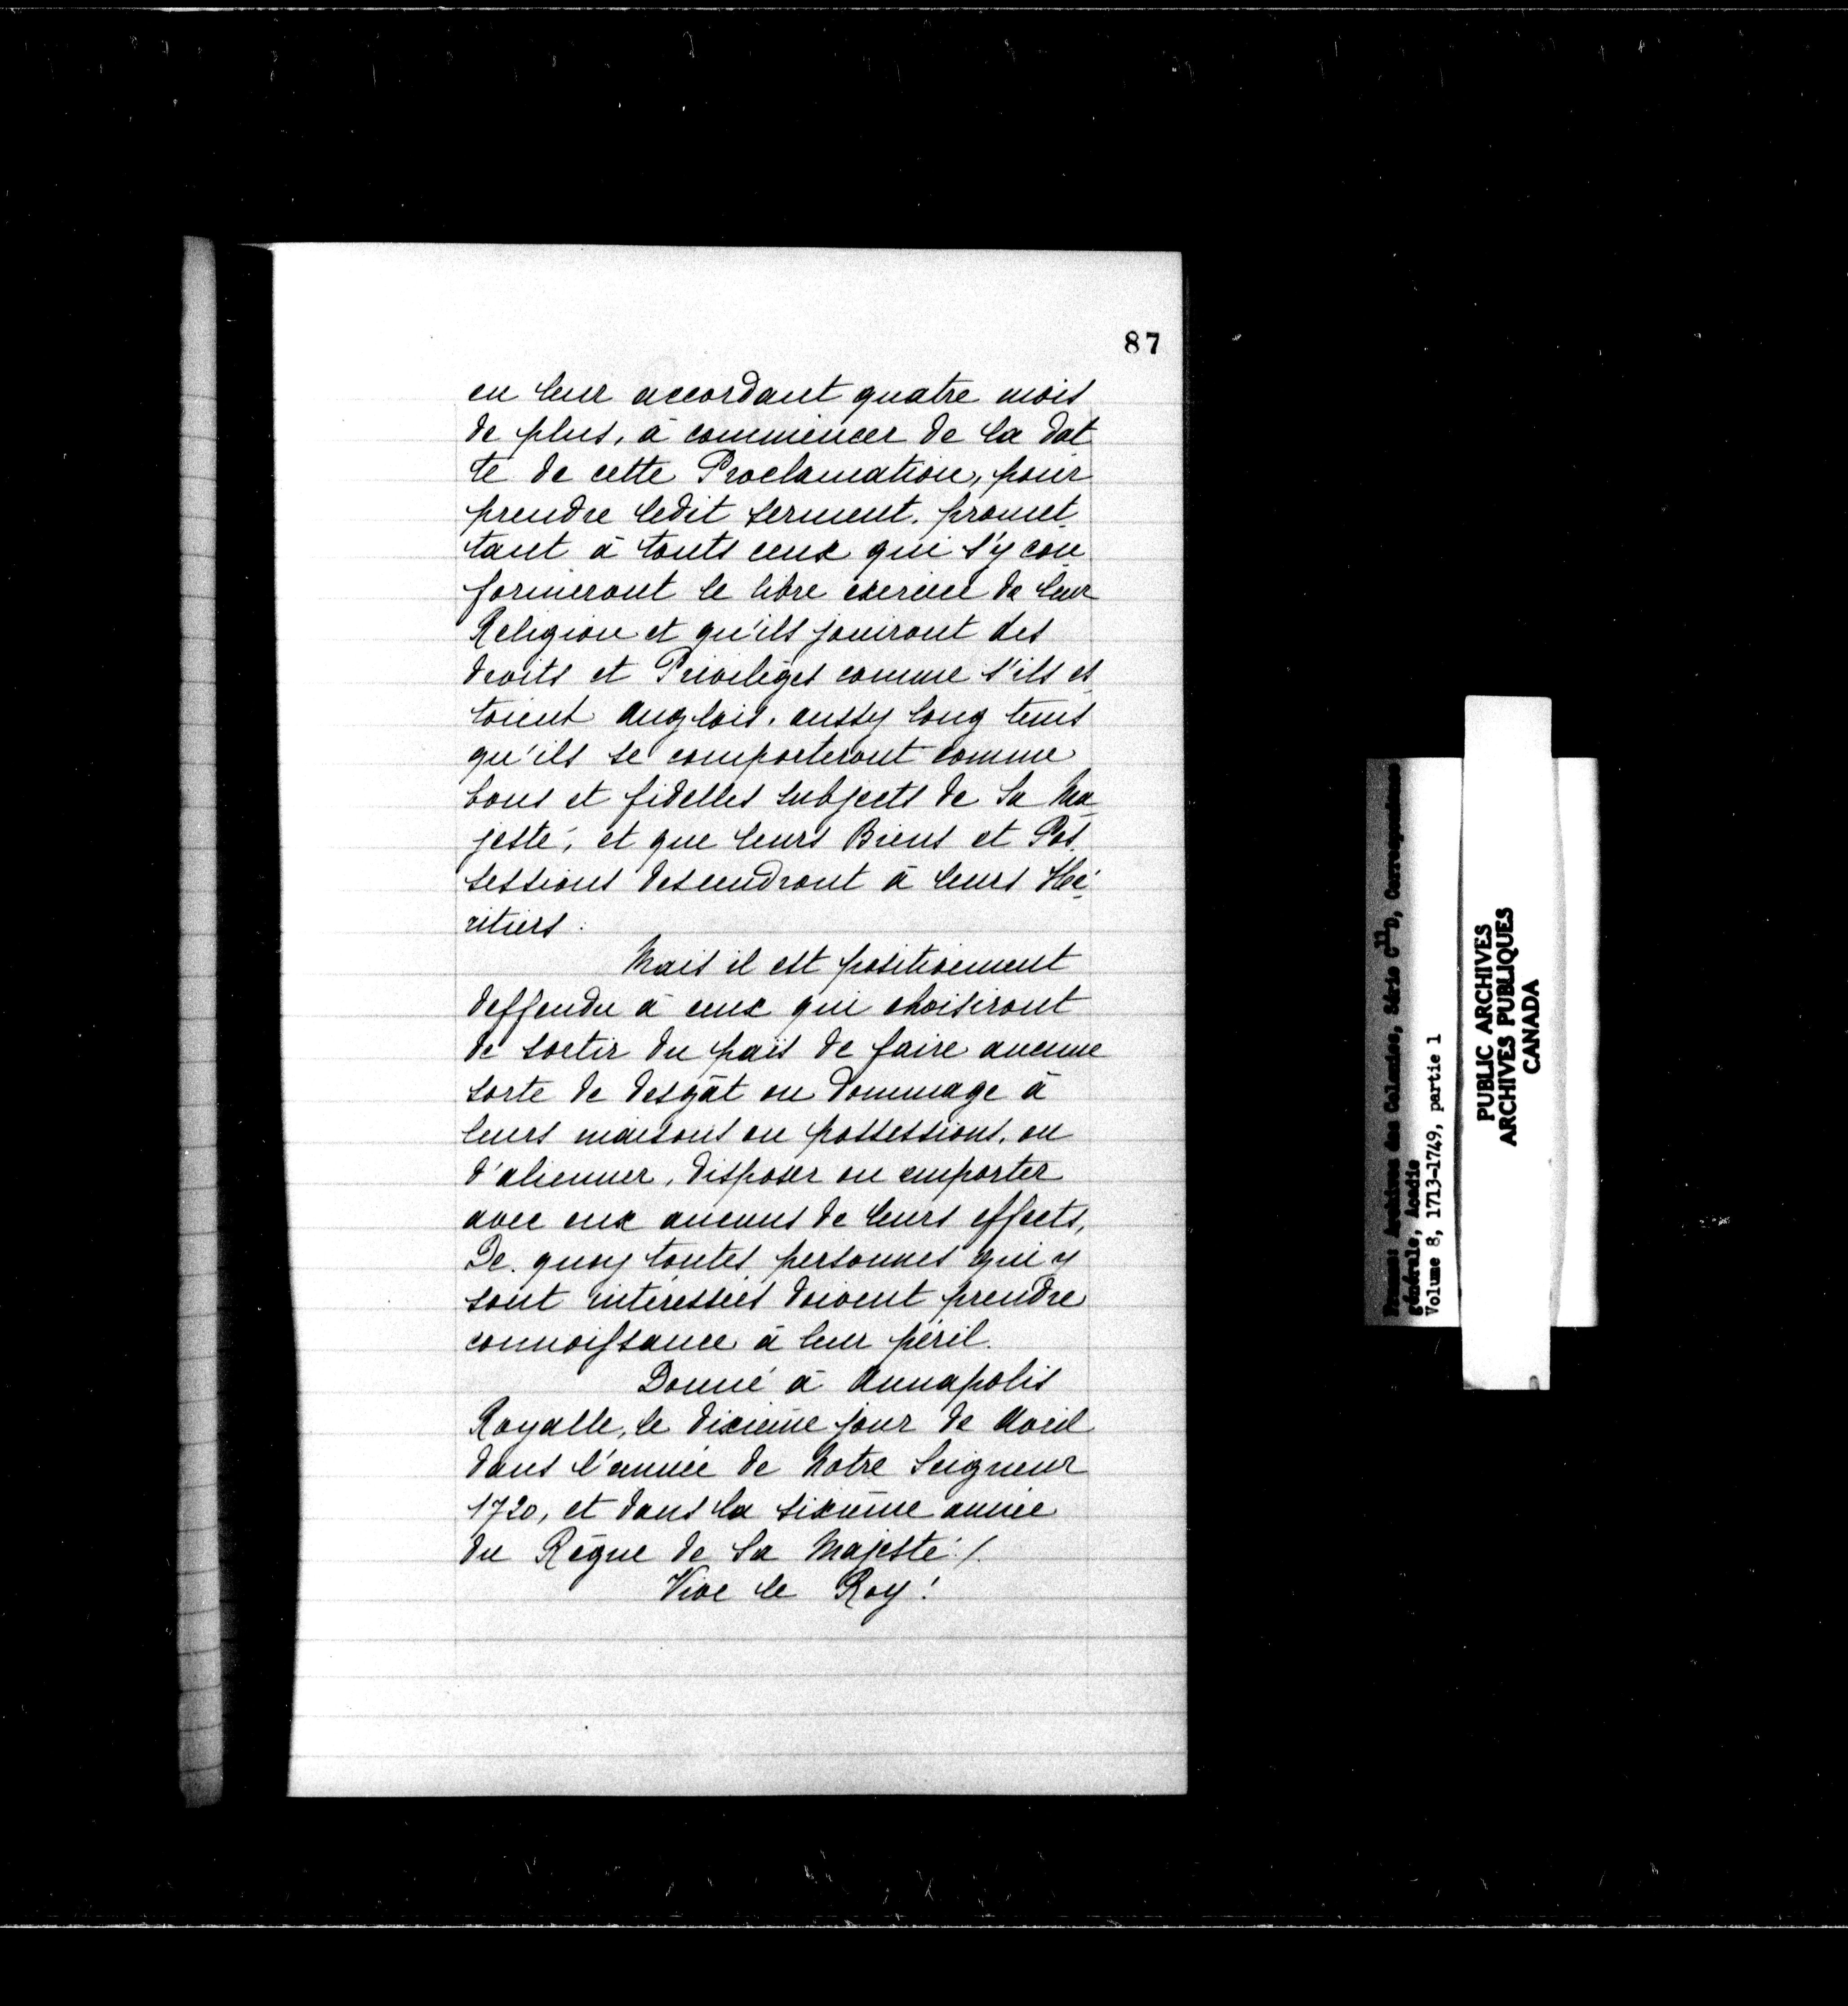 87
en leur accordant quatre mois
de plus, à commencer de la dat
te de cette Proclamation, pour
prendre ledit serment, promet
tant à touts ceux qui s'y con
formeront le libre exercice de leur
Religion et qu'ils jouiront des
droits et Privilèges comme s'ils es
toient Anglois, aussy long tems
qu'ils se comporteront comme
bons et fidelles subjects de Sa Ma
jesté, et que leurs Biens et Pos
sessions descendront à leurs Hé
ritiers :
Mais il est positivement
deffendu à ceux qui choisiront
de sortir du païs de faire aucune
sorte de desgât ou dommage à
leurs maisons ou possessions, ou
d'alienner, disposer ou emporter
avec eux aucuns de leurs effects,
De quoy toutes personnes qui y
sont intéressées doivent prendre
connoissance à leur péril.
Donné à Annapolis
Royalle, le dixième jour de Avril
dans l'année de Notre Seigneur
1720, et dans la sixième année
du Règne de Sa Majesté./.
Vive le Roy !
France: Archives des Colonies, Série C11D, Correspondance
générale, Acadie
Volume 8, 1713-1749, partie 1
PUBLIC ARCHIVES
ARCHIVES PUBLIQUES
CANADA